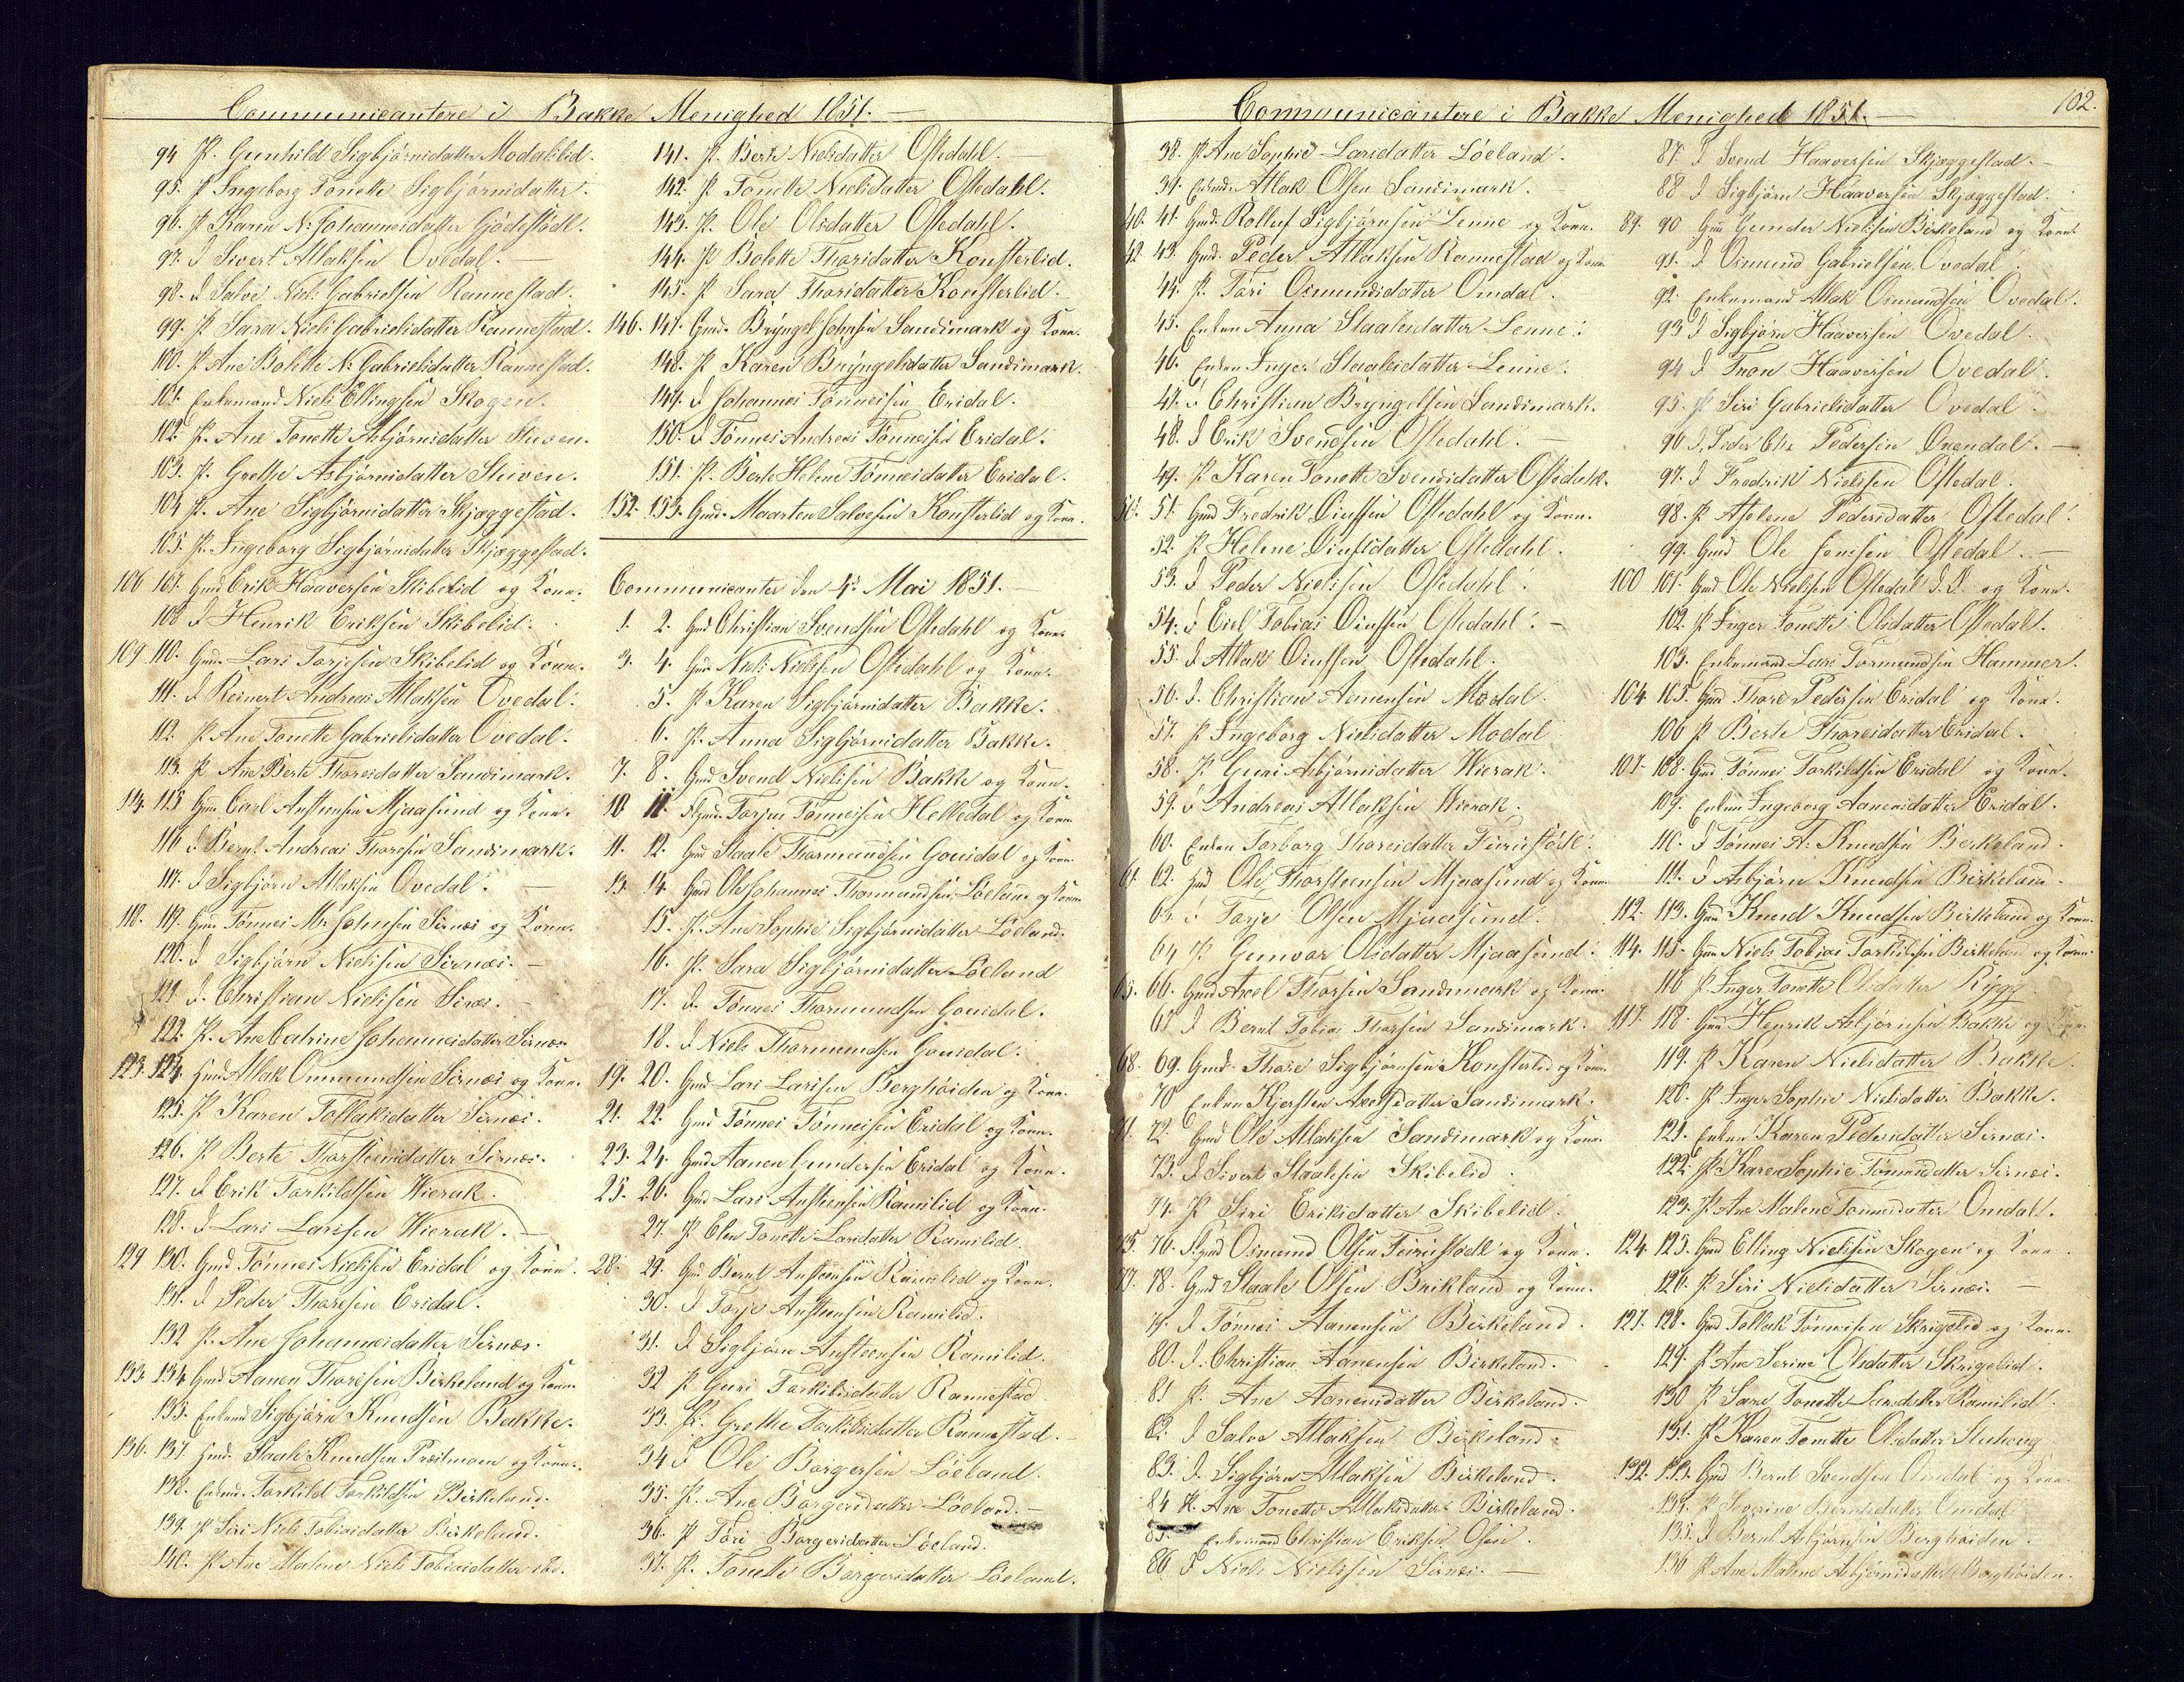 Communicantere i Bakke Menighed 1851.
94 P. Gunhild Sigbjørnsdatter Modalslid.
95. P Ingeborg Tonette Sigbjørnsdatter.
96. P Karen N. Johannesdatter Gjødestødl.
97. J Sivert Atlaksen Ovedal.
98. J Salve Niels Gabrielsen Rannestad.
99. P Sara Niels Gabrielsdatter Rannestad.
100. P. Ane Bolette N. Gabrielsdatter Rannestad.
101. Enkemand Niels Ellingsen Skogen.
102. P. Ane Tonette Asbjørnsdatter Stuven.
103. P. Grethe Asbjørnsdatter Stuven.
104 P. Ane Sigbjørnsdatter Skjæggestad.
105. P. Ingeborg Sigbjørnsdatter Skjæggestad.
106 107. Gmd Erik Haaversen Skibelid og Kone.
108 J Henrik Eriksen Skibelid.
109 110. Gmd. Lars Torjesen Skibelid og Kone.
111. J Reinert Andreas Atlaksen Ovedal.
112. P Ane Tonette Gabrielsdatter Ovedal.
113. P Ane Berte Thoresdatter Sandsmark.
114. 115 Gmd Carl Anstensen Mjaasund og Kone.
116 J Bernt Andreas Thoresen Sandsmark.
117. J Sigbjørn Atlaksen Ovedal.
118. 119. Gmd. Tønnes M. Johnsen Sirnæs og Kone.
120. J Sigbjørn Nielsen Sirnæs.
121 J. Christian Nielsen Sirnæs.
122. P. Ane Catrine Johannesdatter Sirnæs
123. 124. Gmd Atlak Ommundsen Sirnæs og Kone.
125. P Karen Tollaksdatter Sirnæs.
126. P Berte Thorsteensdatter Sirnæs.
127. J Erik Torkildsen Wierak.
128. J Lars Larssen Wierak.
129 130. Gmd. Tønnes Nielsen Eridal og Kone.
131. J Peder Thoresen Eridal.
132 P. Ane Johannesdatter Sirnæs.
133 134 Gmd Aanen Thoresen Birkeland og Kone
135. Enkemd Sigbjørn Knudsen Bakke.
136. 137. Gmd. Staale Knudsen og Kone.
138. Enkmd. Torkild Torkildsen Birkeland.
139. P Siri Niels Tobiasdatter Birkeland.
140. P Ane Malene Niels Tobiasdatter ibd.
141. P. Berte Nielsdatter Oftedahl.
142. P Tonette Nielsdatter Oftedahl.
143. P. Ole Olsdatter Oftedahl.
144. P Bolette Thorsdatter Konsterlid.
145. P Sara Thorsdatter Konsterlid.
146. 147. Gmd. Bryngel Johnsen Sandsmark og Kone.
148. P Karen Bryngelsdatter Sandsmark.
149. J Johannes Tønnessen Eridal.
150. J Tønnes Andreas Tønnessen Eridal.
151. P. Berte Helene Tønnesdatter Eridal.
152. 153. Gmd. Maarten Salvesen Konsterlid og Kone.
Communicanter den 4de Mai 1851.
1. 2. Gmd Christian Svendsen Oftedahl og Kone
3. 4. Gmd Niels Nielsen Oftedahl og Kone.
5. P Karen Sigbjørnsdatter Bakke.
6. P. Anna Sigbjørnsdatter Bakke.
7. 8. Gmd Svend Nielsen Bakke og Kone.
10 11. Torjus Tønnessen Helledal og Kone
11. 12. Gmd Staale Thormundsen Gouidal og Kone
13. 14. Gmd Ole Johannes Thormundsen Løeland og Kone
15. P. Ane Sophie Sigbjørnsdatter Løeland.
16. P. Sara Sigbjørnsdatter Løeland
17. J. Tønnes Thormundsen Gouidal.
18. J Niels Thormundsen Gouidal.
19. 20. Gmd Lars Larssen Berghøiden og Kone.
21. 22. Gmd Tønnes Tønnessen Eridal og Kone.
23. 24. Gmd Aanen Gundersen Eridal og Kone.
25. 26. Gmd Lars Ansteensen Ramslid og Kone.
27. P Elen Tonette Larsdatter Ramslid.
28. 29. Gmd Bernt Ansteensen Ramslid og Kone.
30. J Torje Ansteensen Ramslid.
31. J Sigbjørn Ansteensen Ramslid.
32 P Guri Torkildsdatter Rannestad
33. P. Grethe Torkildsdatter Rannestad.
34 J Ole Borgersen Løeland.
35. P. Ane Borgersdatter Løeland.
36. P Tori Borgersdatter Løeland.
37. P. Tonette Borgersdatter Løeland.
Communicantere i Bakke Menighed 1851. 102.
38. P Ane Sophie Larsdatter Løeland.
39. Enkmd. Atlak Olsen Sandsmark.
40. 41. Gmd. Rollef Sigbjørnsen Lenne og Kone.
42 43. Gmd. Peder Atlaksen Rannestad og Kone
44. P. Tori Osmundsdatter Omdal.
45. Enken Anna Staalesdatter Lenne.
46. Enken Inger Staalesdatter Lenne.
47. J Christian Bryngelsen Sandsmark.
48. J Erik Svendsen Oftedahl.
49. P Karen Tonette Svendsdatter Oftedahl.
50. 51. Gmd Fredrik Diussen Oftedahl og Kone.
52. P Helene Diusdatter Oftedahl.
53. J Peder Nielsen Oftedahl.
54. J Eiel Tobias Diussen Oftedahl.
55. J Atlak Diussen Oftedahl.
56. J. Christian Aanensen Modal.
57. P Ingeborg Nielsdatter Modal
58. P Guri Asbjørnsdatter Wierak.
59. J Andreas Atlaksen Wierak.
60. Enken Torborg Thoresdatter Feiriestødl.
61. 62. Gmd Ole Thorsteensen Mjaasund og Kone
63 J Torje Olsen Mjaasund.
64 P Gunvor Olsdatter Mjaasund.
65. 66. Gmd Axel Thorsen Sandsmark og Kone.
67 J Bernt Tobias Thorsen Sandsmark.
68. 69. Gmd. Thore Sigbjørnsen Konsterlid og Kone.
70 Enken Kjersten Axelsdatter Sandsmark.
71. 72. Gmd Ole Atlaksen Sandsmark og Kone.
73. J Sivert Staalesen Skibelid.
74. P Siri Eriksdatter Skibelid.
75. 76. Osmund Olsen Feiriestødl og Kone.
77. 78. Gmd Staale Olsen Brikland og Kone.
79. J Tønnes Aanensen Birkeland.
80. J. Christian Aanensen Birkeland.
81 P. Ane Aanensdatter Birkeland.
82. J Salve Atlaksen Birkeland.
83. J. Sigbjørn Atlaksen Birkeland.
84 P. Ane Tonette Atlaksdatter Birkeland.
85. Enkemand Christian Eriksen Osen.
86 J Niels Nielsen Sirnæs.
87. J Svend Haaversen Skjæggestad.
88 J Sigbjørn Haaversen Skjæggestad.
89. 90 Gmd Gunder Nielsen Birkeland og Kone.
91. J Osmund Gabrielsen Ovedal.
92. Enkemand Atlak Osmundsen Ovedal.
93 J Sigbjørn Haaversen Ovedal.
94 J Tron Haaversen Ovedal.
95. P Siri Gabrielsdatter Ovedal.
96 J. Peder Chr. Pedersen Øxendal.
97. J Fredrik Nielsen Oftedal.
98. P Aselene Pedersdatter Oftedal.
99. Gmd Ole Jonsen Oftedal.
100 101. Gmd Ole Nielsen Oftedal og Kone.
102. P Inger Tonette Olsdatter Oftedal.
103. Enkemand Lars Tormundsen Hammer.
104. 105. Gmd Thore Pedersen Eridal og Kone.
106 P Berte Thoresdatter Eridal.
107. 108. Gmd Tønnes Torkildsen Eridal og Kone.
109. Enken Ingeborg Aanensdatter Eridal.
110. J Tønnes A. Knudsen Berkeland.
111. J Asbjørn Knudsen Birkeland.
112. 113. Gmd Knud Knudsen Birkeland og Kone.
114. 115. Gmd Niels Tobias Torkildsen Birkeland og Kone.
116 P Inger Tonette Olsdatter Rygg
117. 118. Gmd Henrik Asbjørnsen Bakke og Kone.
119. P Karen Nielsdatter Bakke.
120. P Inger Sophie Nielsdatter Bakke.
121. Enken Karen Pedersdatter Sirnæs.
122. P Karen Sophie Tønnesdatter Sirnæs.
123. P. Ane Malene Tønnesdatter Omdal.
124. 125. Gmd Elling Nielsen Skogen og Kone.
126. P Siri Nielsdatter Sirnæs.
127. 128. Gmd Tollak Tønnessen Skrigelid og Kone.
129. P Ane Serine Olsdatter Skrigelid.
130 P Sare Tonette Larsdatter Ramslid.
131. P Karen Tonette Olsdatter
132. 133. Gmd Bernt Svendsen Omdal og Kone
134. P Severine Berntsdatter Omdal
135. J Bernt Asbjørnsen Berghøiden.
136 P Ane Malene Asbjørnsdatter Berghøiden.